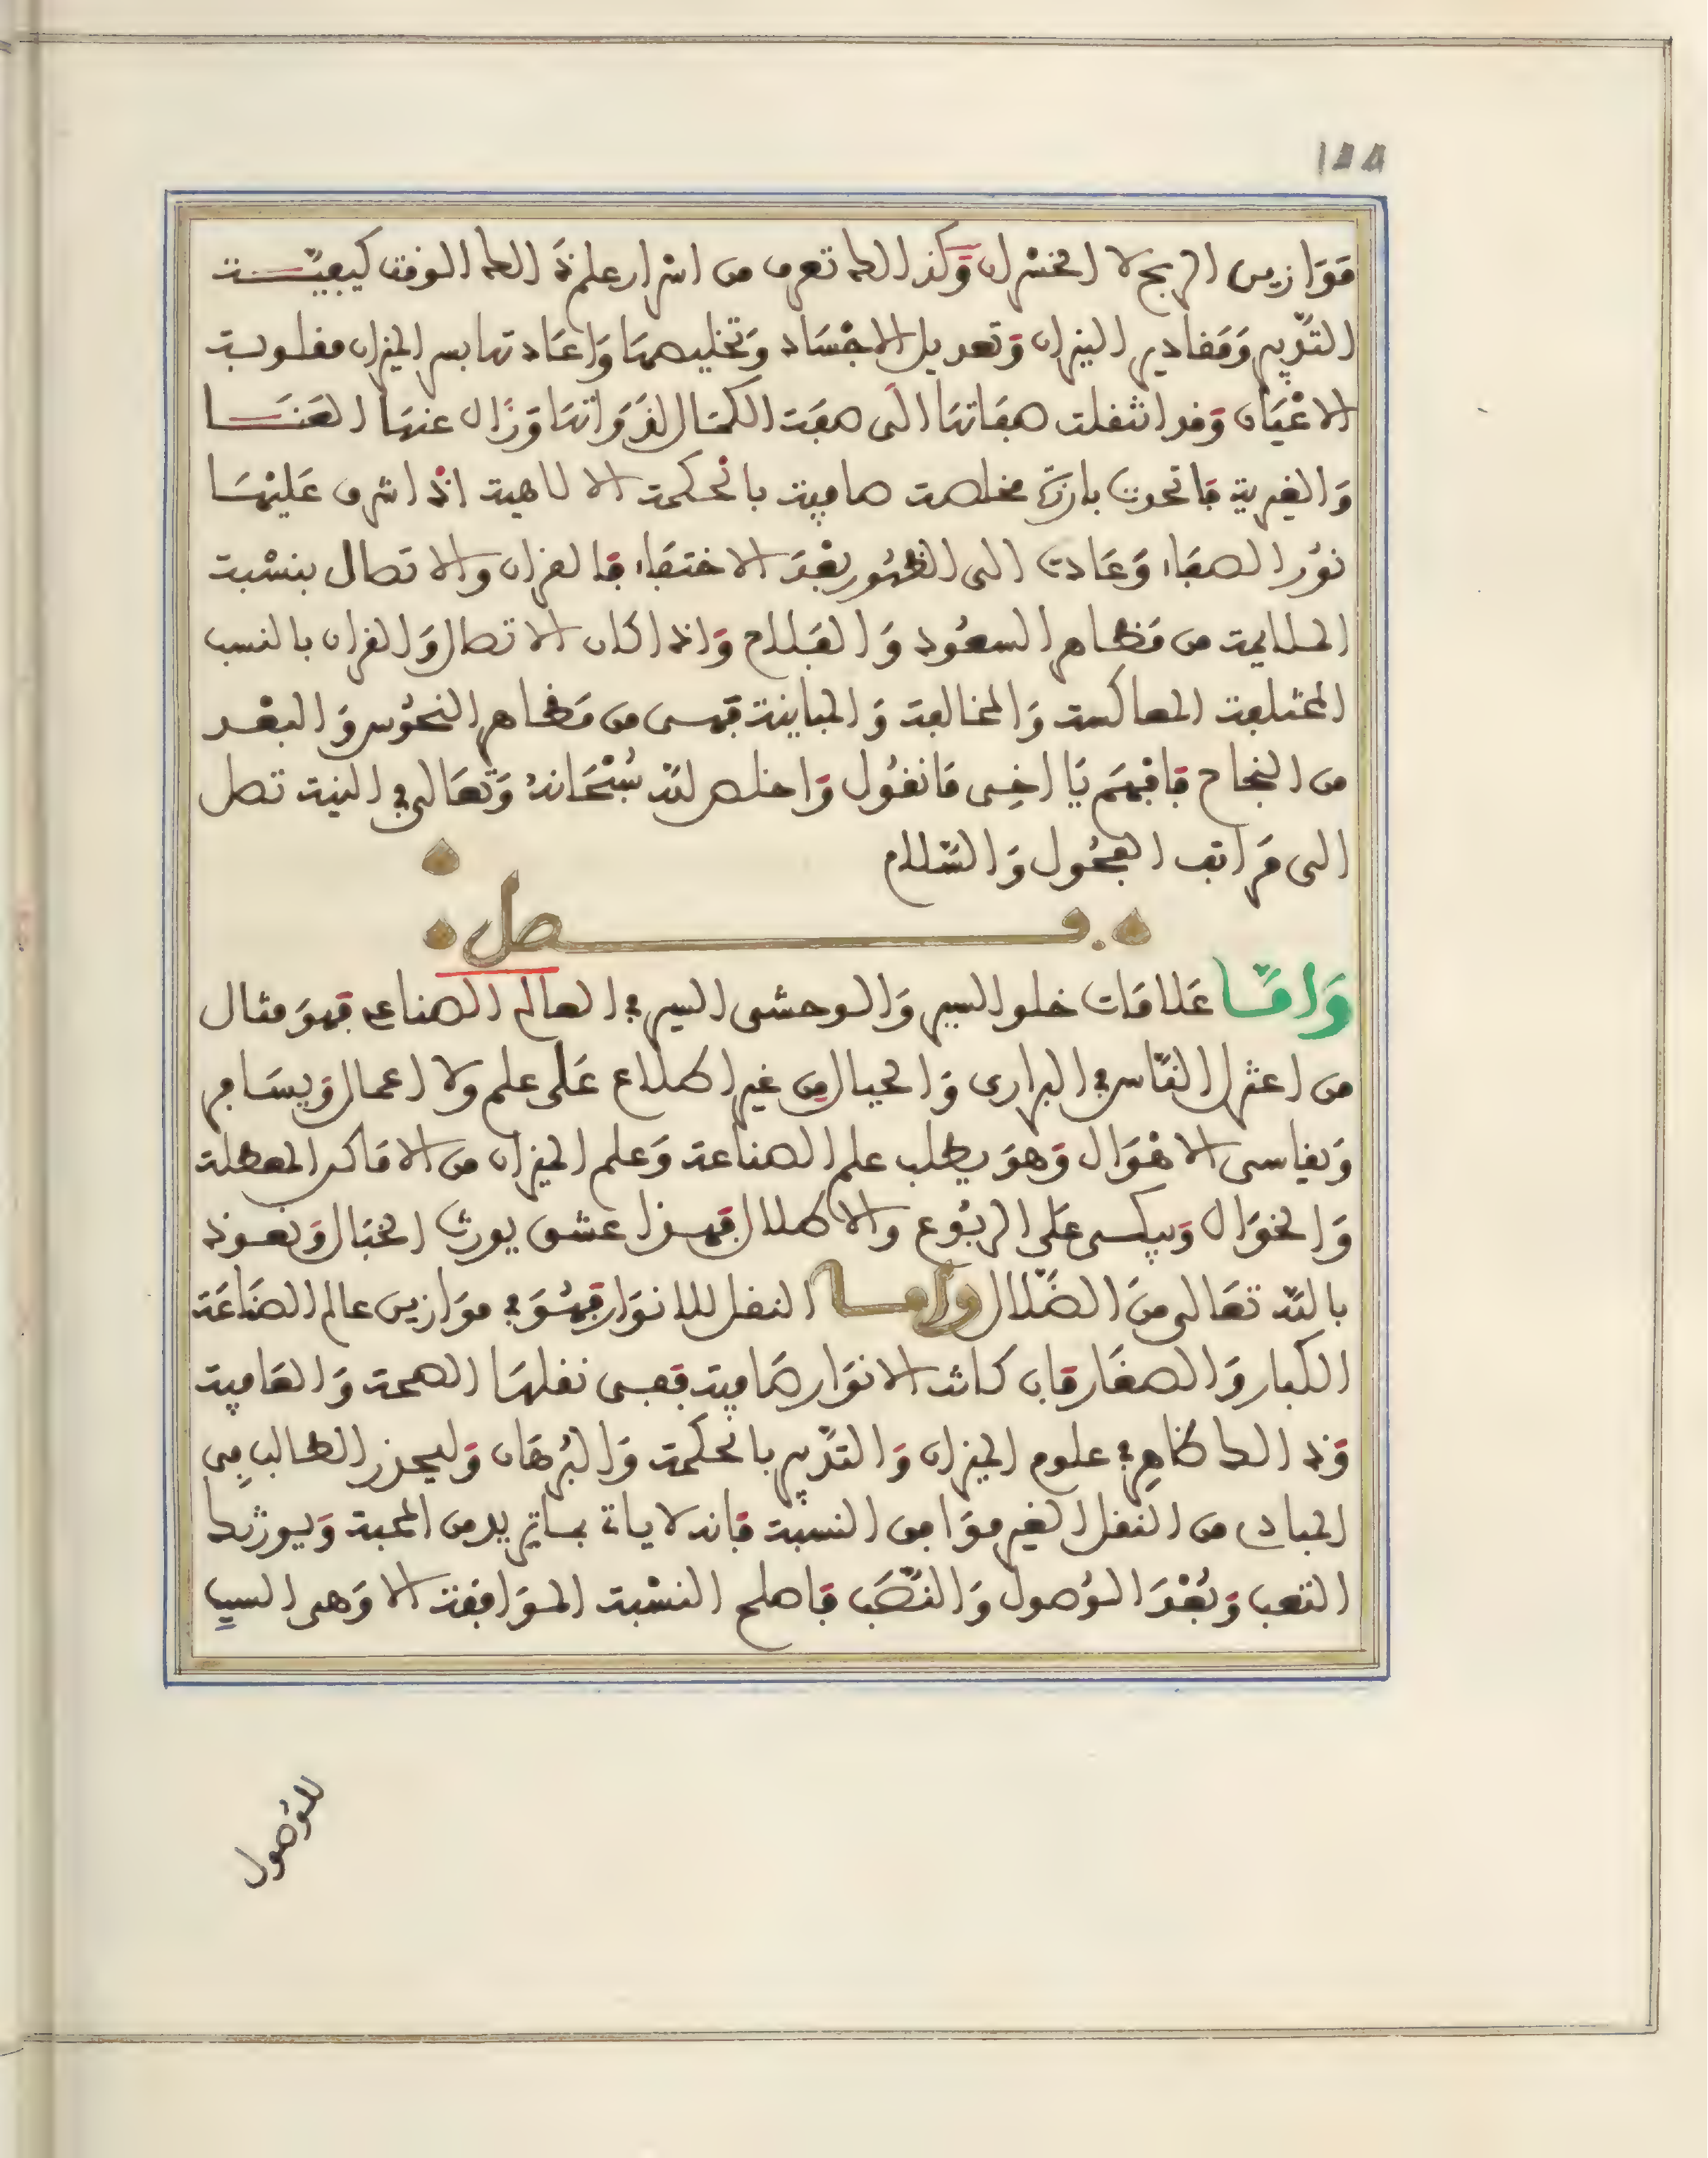 ١٨٨
مَوَازين الربح لا الخسران وَكذالك تعرف من اسْرار علم ذَالك الوقت كيفيّت
التَّدبير وَمَقادير النيران وَتعديل الاجْسَاد وَتخليصهَا وَاعَادتها بسر الميزان مقلوبة
الاعْيَان وَقد انتقلت صفَاتهَا الَى صفَة الكمَال لذَوَاتهَا وَزَال عنهَا العَنَا
وَالغيرية فاتحدت بارزَة مخلصة صافية بالحكمة الالاهية اذ اشرق عَليْهَا
نوُر الصفَاء وَعَادت الى الظهُور بعْدَ الاختفَاء فَالقران والاتصال بنسْبة
الملايمة من مَظاهر السعُود وَالفَلاح وَاذا كان الاتصال وَالقران بالنسب
المختلفة المعاكسة وَالمخالفة وَالمباينة فَهى من مَظاهر النحُوس وَالبعْد
من النجاح فَافْهَم يَا اخِى مَا نقُول وَاخلص للَّه سُبْحَانهُ وَتعَالى في النية تصل
الى مَراتب الفحُول وَالسَّلام
فصل
وَامَّا عَلامَات خلو السير وَالوحشى السير في العالم الصناعى فَهوَ مثال
من اعتزل النَّاس في البرارى وَالجبال من غير اطلاع عَلى علم ولا اعمال وَيسَافر
وَيقاسى الاهْوَال وَهوَ يطلب علم الصناعة وَعلم الميزان من الامَاكن المعطلة
وَالخوَال وَيبكى عَلى الربُوع والاطلال فَهذا عشق يورث الخبَال وَنعوذ
باللَّه تعَالى منَ الضَّلال وَامَا النقل للانوَار فَهُوَ في موَازين عالم الصنَاعَة
الكبار وَالصغَار فَان كانت الانوَار صَافية فَفى نقلهَا الصحة وَالعَافية
وَذالك ظاهر في علوم الميزان وَالتدَّبير بالحكمة وَالبُرهَان وَليحذر الطالب فِى
المبادى من النقل الغير موَافق النسْبة فَانه لا ياتى بما تريد من المحبة وَيورثك
التعب وَبُعْدَ الوُصول وَالنَّصَب فَاصلح النسْبة الموَافقة الا وَهى السبب
للوُصول